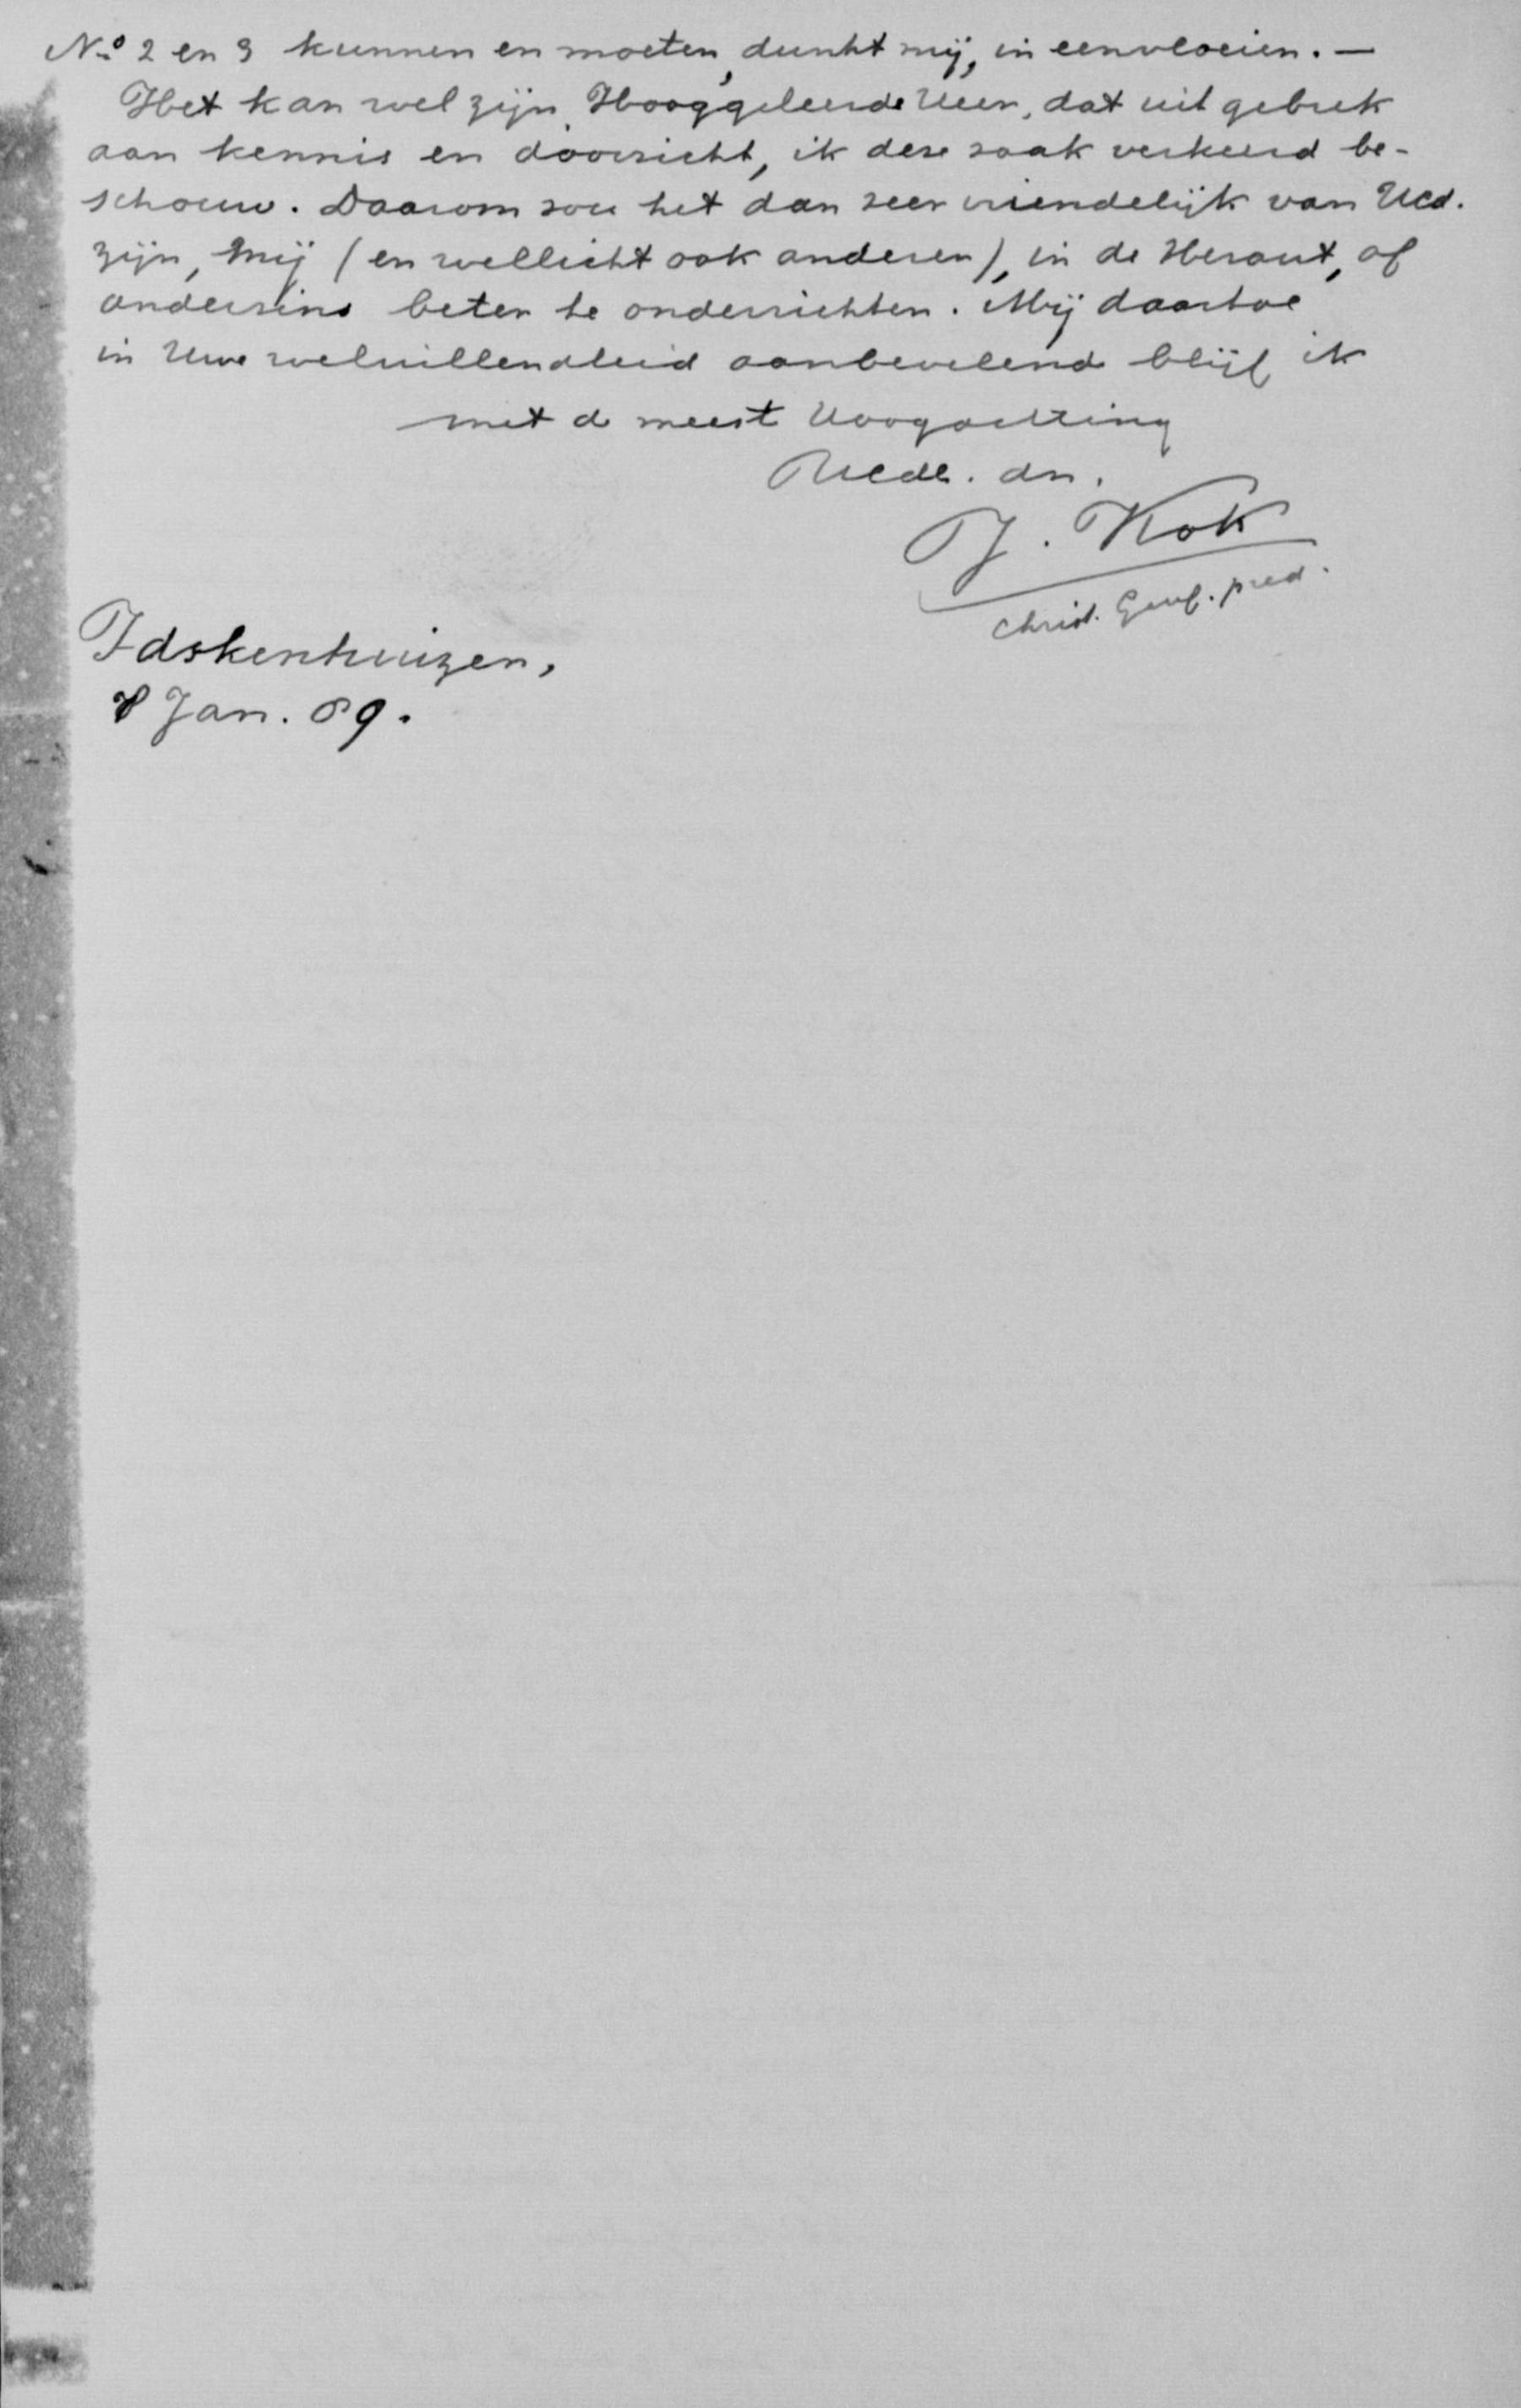 No 2 en 3 kunnen en moeten, dunkt mij, in eenvloeien. —
Het kan wel zijn, Hooggeleerde Heer, dat uit gebrek
aan kennis en doorzicht, ik deze zaak verkeerd be-
schouw. Daarom zou het dan zeer vriendelijk van UEd.
zijn, mij (en wellicht ook anderen), in de Heraut, of
anderzins beter te onderrichten. Mij daartoe
in Uwe welwillendheid aanbevelend blijf ik
met de meest Hoogachting
UEdl. dn.
J. Kok
Christ. Geref. pred.
Idskenhuizen,
8 Jan. 89.